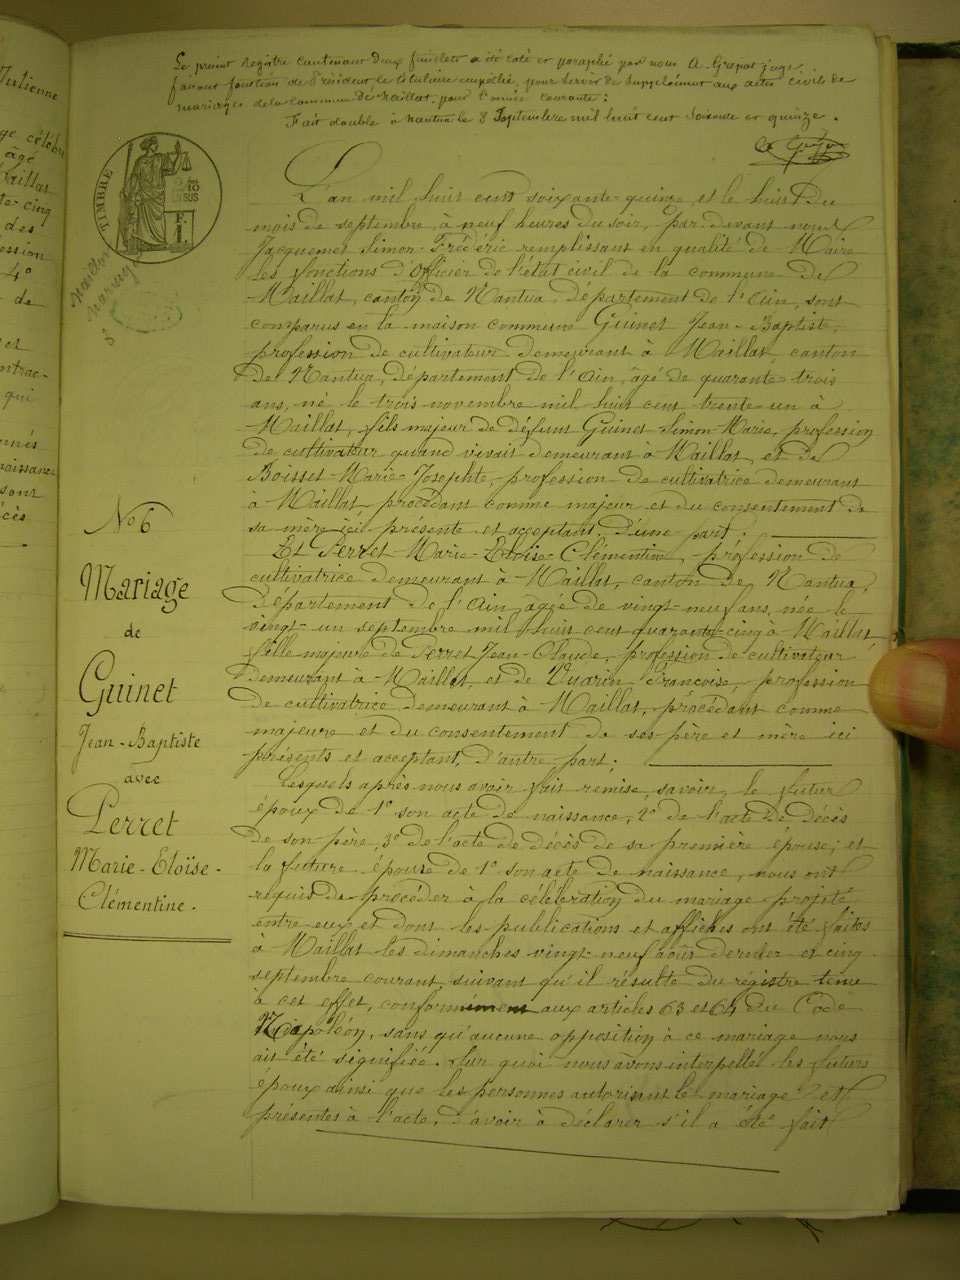 Le présent Registre contenant deux feuillets a été coté et paraphé par nous A. Grepat juge
faisant fonction de Président le titulaire empêché, pour servir de Supplément aux actes civils de
mariages de la commune de Maillat, pour l'année courante :
Fait double à Nantua le 8 Septembre mil huit cent soixante et quinze.
TIMBRE
No 6
Mariage
de
Guinet
Jean-Baptiste
avec
Perret
Marie-Eloïse-
Clémentine.
L'an mil huit cent soixante-quinze, et le huit du
mois de septembre, à neuf heures du soir, par devant nous
Jacquemet Simon-Frédéric remplissant en qualité de Maire
les fonctions d'Officier de l'état civil de la commune de
Maillat, canton de Nantua, Département de l'Ain, sont
comparus en la maison commune Guinet Jean-Baptiste,
profession de cultivateur demeurant à Maillat, canton
de Nantua, département de l'Ain, âgé de quarante-trois
ans, né le trois novembre mil huit cent trente un à
Maillat, fils majeur de défunt Guinet Simon-Marie, profession
de cultivateur quand vivait demeurant à Maillat, et de
Boisset Marie-Josephte, profession de cultivatrice demeurant
à Maillat, procédant comme majeur et du consentement de
sa mère ici présente et acceptant, d'une part;
Et Perret-Marie-Eloïse-Clémentine, profession de
cultivatrice demeurant à Maillat, canton de Nantua,
département de l'Ain, âgée de vingt-neuf ans, née le
vingt-un septembre mil huit cent quarante-cinq à Maillat
fille majeure de Perret Jean-Claude, profession de cultivateur
demeurant à Maillat, et de Vuarin Françoise, profession
de cultivatrice demeurant à Maillat, procédant comme
majeure et du consentement de ses père et mère ici
présents et acceptant, d'autre part;
Lesquels après nous avoir fait remise, savoir, le futur
époux de 1o son acte de naissance, 2o de l'acte de décès
de son père, 3o de l'acte de décès de sa première épouse; et
la future épouse de 1o son acte de naissance, nous ont
requis de procéder à la célébration du mariage projeté
entre eux et dont les publications et affiches ont été faites
à Maillat les dimanches vingt-neuf août dernier et cinq
septembre courant, suivant qu'il résulte du régistre tenu
à cet effet, conformément aux articles 63 et 64 du Code
Napoléon, sans qu'aucune opposition à ce mariage nous
ait été signifiée. Sur quoi nous avons interpellé les futurs
époux ainsi que les personnes autorisant le mariage et
présentes à l'acte, d'avoir à déclarer s'il a été fait